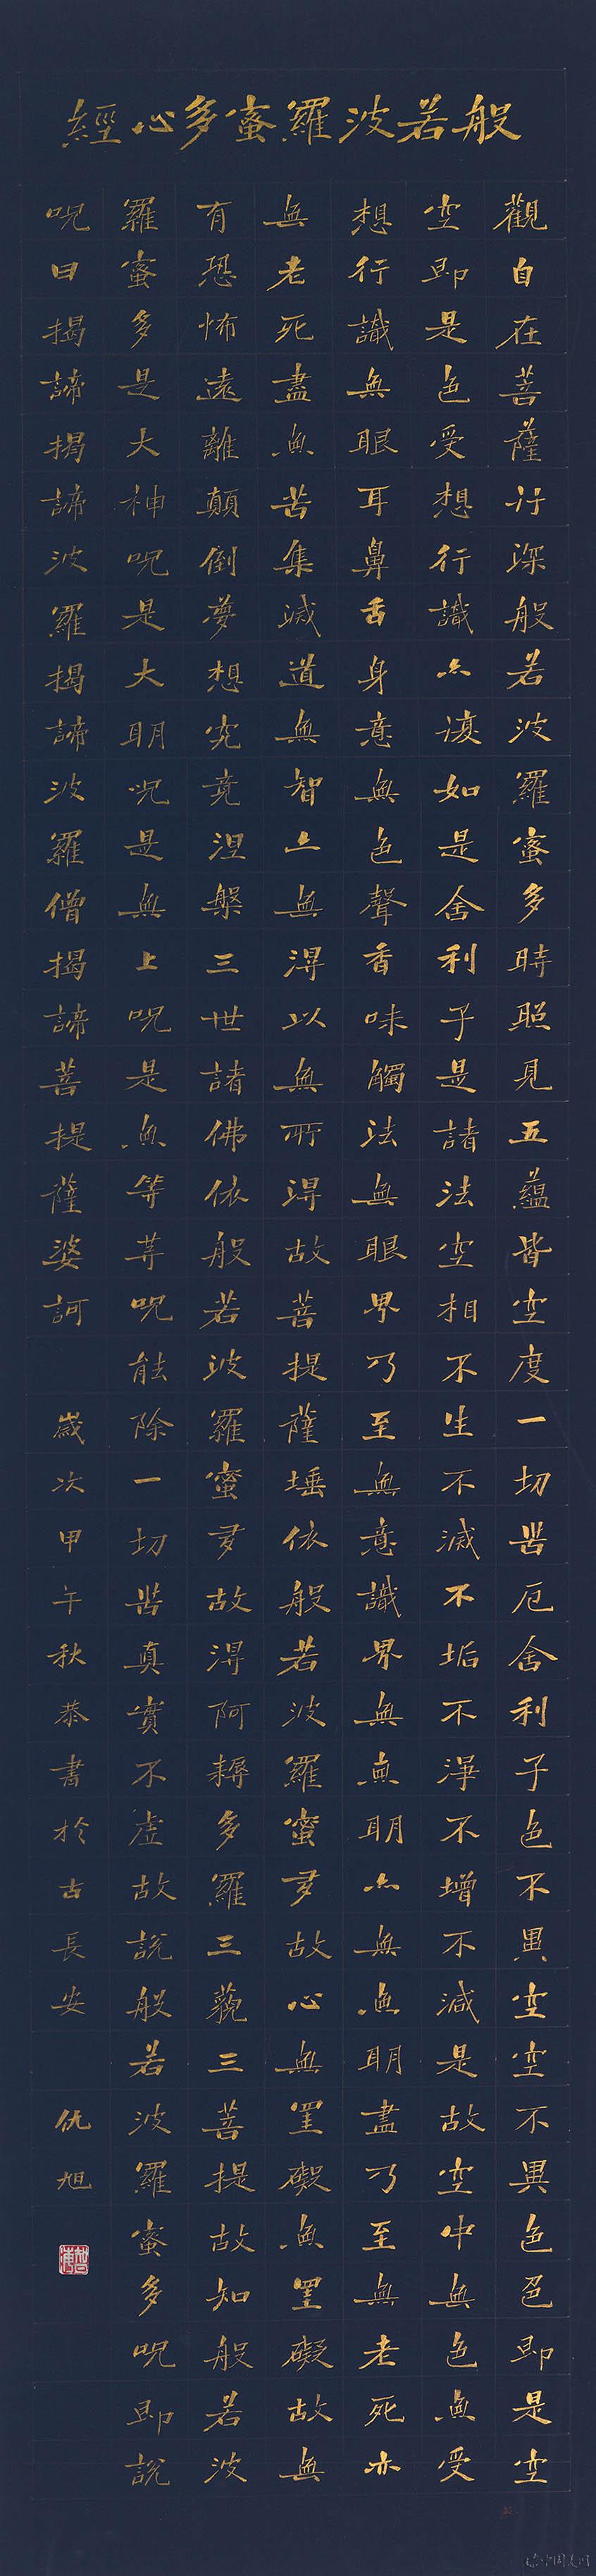 般若波羅蜜多心經
觀自在菩薩行深般若波羅蜜多時照見五蘊皆空度一切苦厄舍利子色不異空空不異色色即是空
空即是色受想行識亦復如是舍利子是諸法空相不生不滅不垢不淨不增不減是故空中無色無受
想行識無眼耳鼻舌身意無色聲香味觸法無眼界乃至無意識界無無明亦無無明盡乃至無老死亦
無老死盡無苦集滅道無智亦無得以無所得故菩提薩埵依般若波羅蜜多故心無罣礙無罣礙故無
有恐怖遠離顛倒夢想究竟涅槃三世諸佛依般若波羅蜜多故得阿耨多羅三藐三菩提故知般若波
羅蜜多是大神呪是大明呪是無上呪是無等等呪能除一切苦真實不虛故說般若波羅蜜多呪即說
呪曰揭諦揭諦波羅揭諦波羅僧揭諦菩提薩婆訶 歲次甲午秋恭書於古長安 仇旭